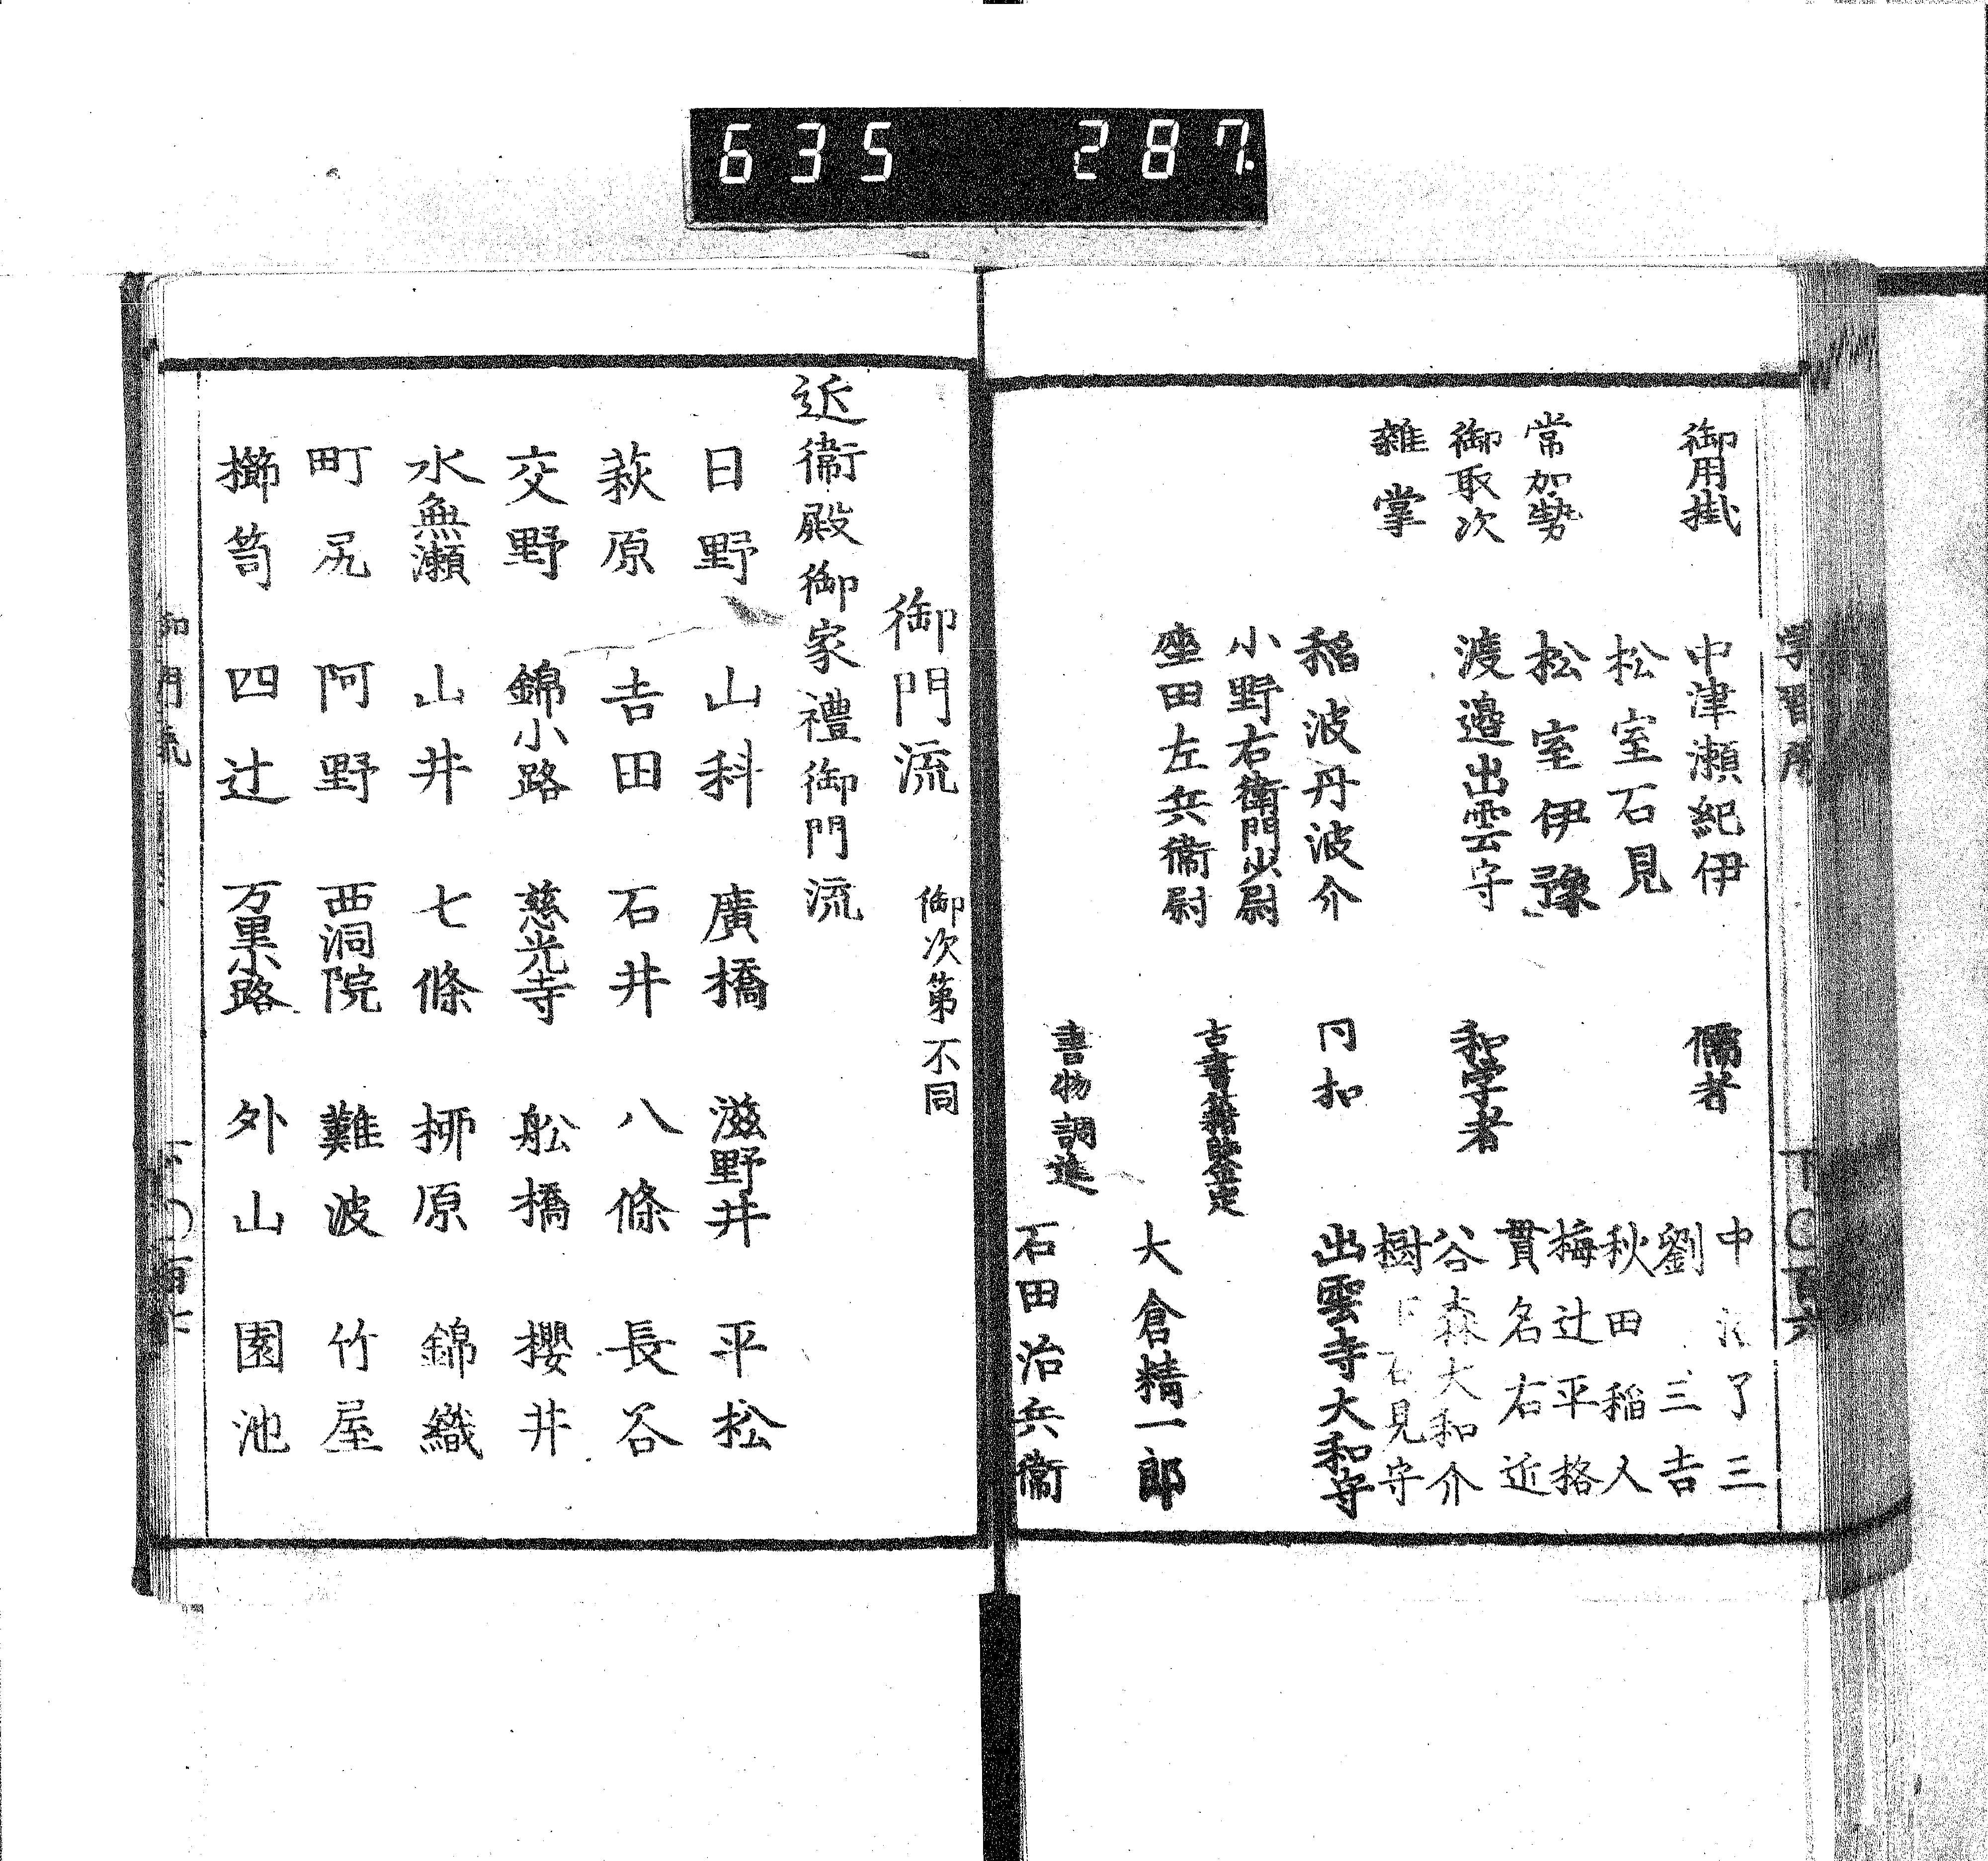 635 287.
御用掛 中津瀬紀伊
松室石見
常加勢 松室伊豫
御取次 渡邉出雲守
雜掌 稲波丹波介
小野右衛門少尉
座田左兵衞尉
儒者 中 了三
劉 三吉
秋田稲人
梅辻平格
貫名右近
和学者 谷森大和介
樹下石見守
同和 出雲寺大和守
大倉精一郎
書物調進 石田治兵衞
御門流 御次第不同
近衞殿御家禮御門流
日野 山科 廣橋 滋野井 平松
萩原 吉田 石井 八條 長谷
交野 錦小路 慈光寺 舩橋 櫻井
水無瀬 山井 七條 栁原 錦織
町尻 阿野 西洞院 難波 竹屋
櫛笥 四辻 万里小路 外山 園池